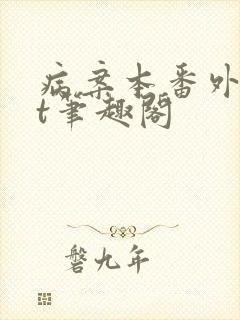 病案本番外
t笔趣阁
磐九年